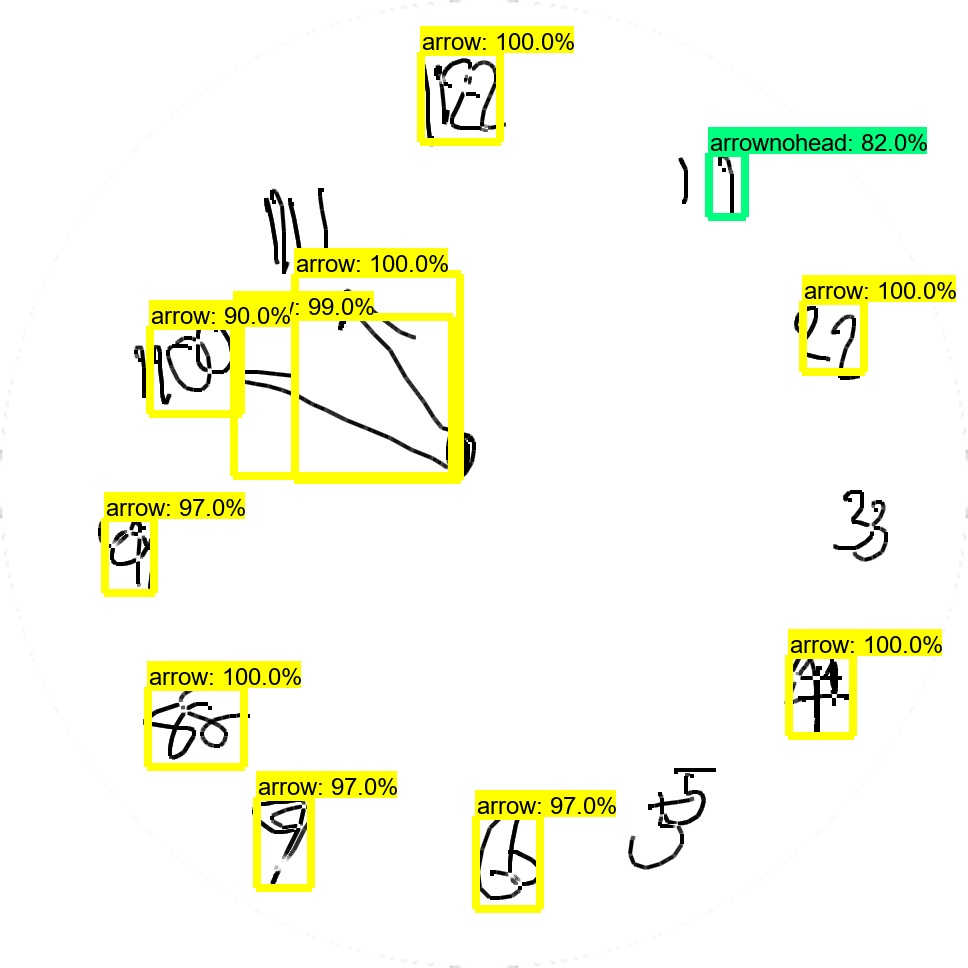 arrow: 100.0%
12
arrownohead: 82.0%
11
11
arrow: 100.0%
arrow: 100.0%
22
: 99.0%
arrow: 90.0%
33
arrow: 97.0%
9
arrow: 100.0%
4
arrow: 100.0%
88
55
arrow: 97.0%
arrow: 97.0%
6